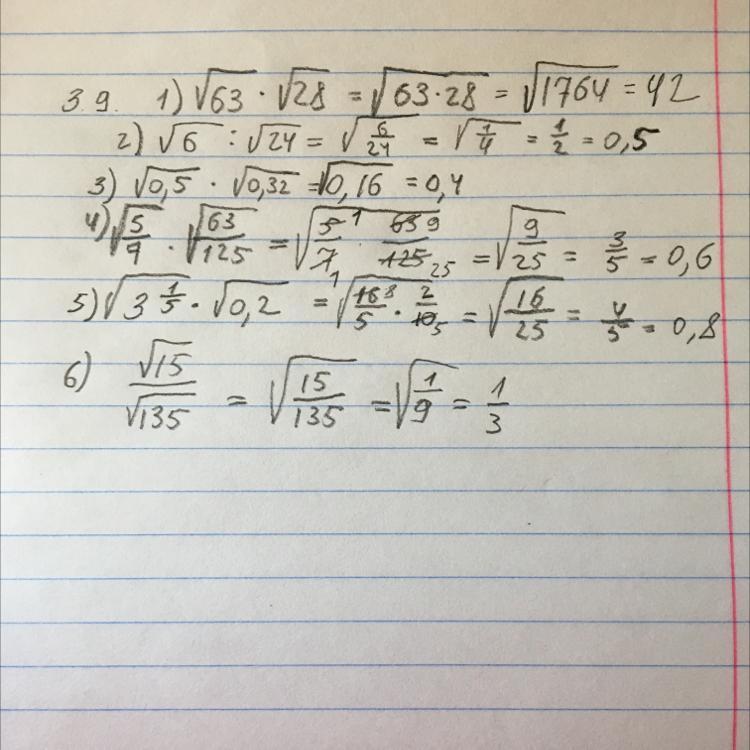 3.9. 1) √63 · √28 = √63·28 = √1764 = 42
2) √6 : √24 = √6/24 = √1/4 = 1/2 = 0,5
3) √0,5 · √0,32 = √0,16 = 0,4
4) √5/9 · √63/125 = √5 1/7 1 · 63 9/125 25 = √9/25 = 3/5 = 0,6
5) √3 1/5 · √0,2 = √16 8/5 · 2/10 5 = √16/25 = 4/5 = 0,8
6) √15/√135 = √15/135 = √1/9 = 1/3